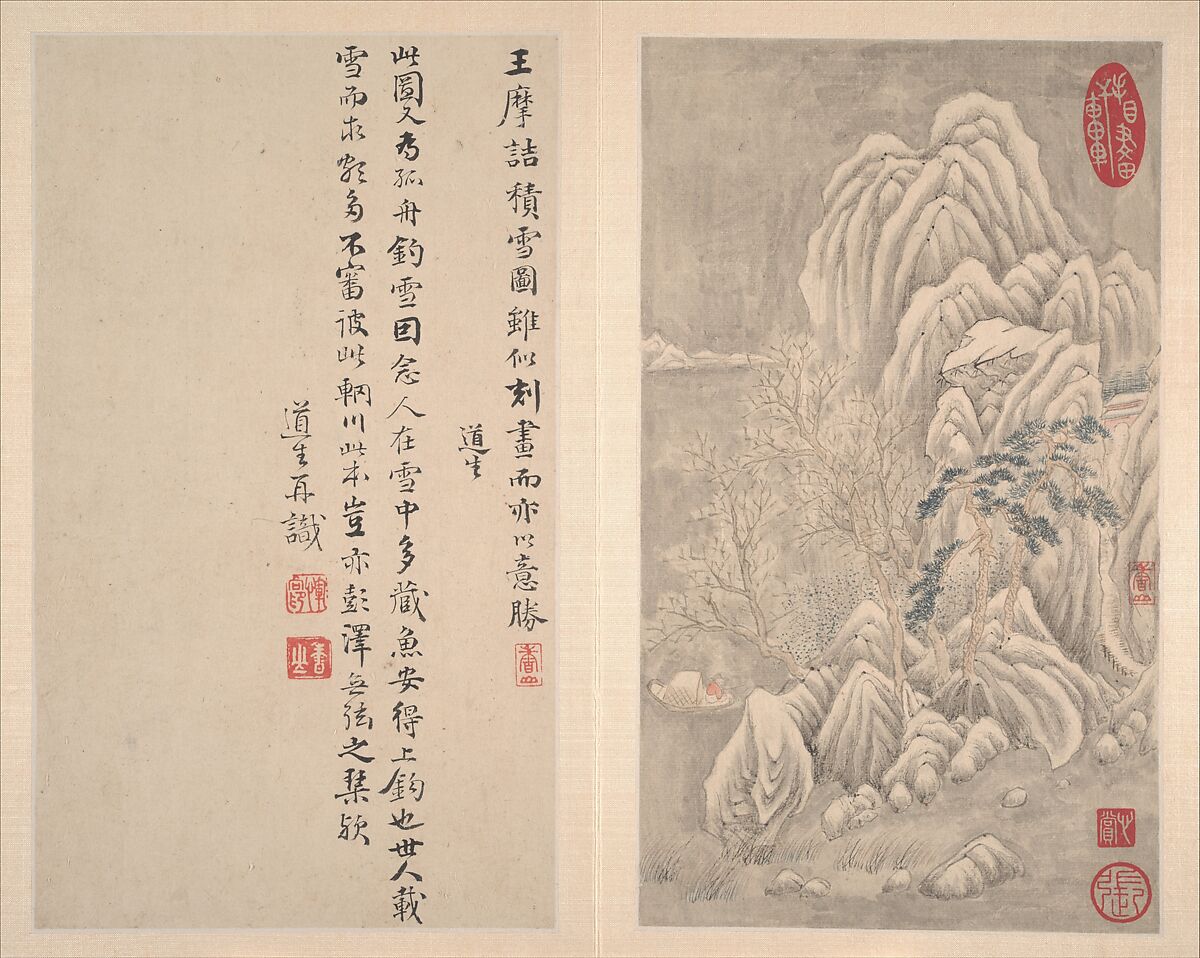 王摩詰積雪圖雖似刻畫而亦以意勝
道生
此圖又为孤舟釣雪囙念人在雪中多藏魚安得上鈎也世人載
雪而求多不審彼此輞川此本豈亦彭澤無弦之琹歟
道生再識
香山
心賞
張